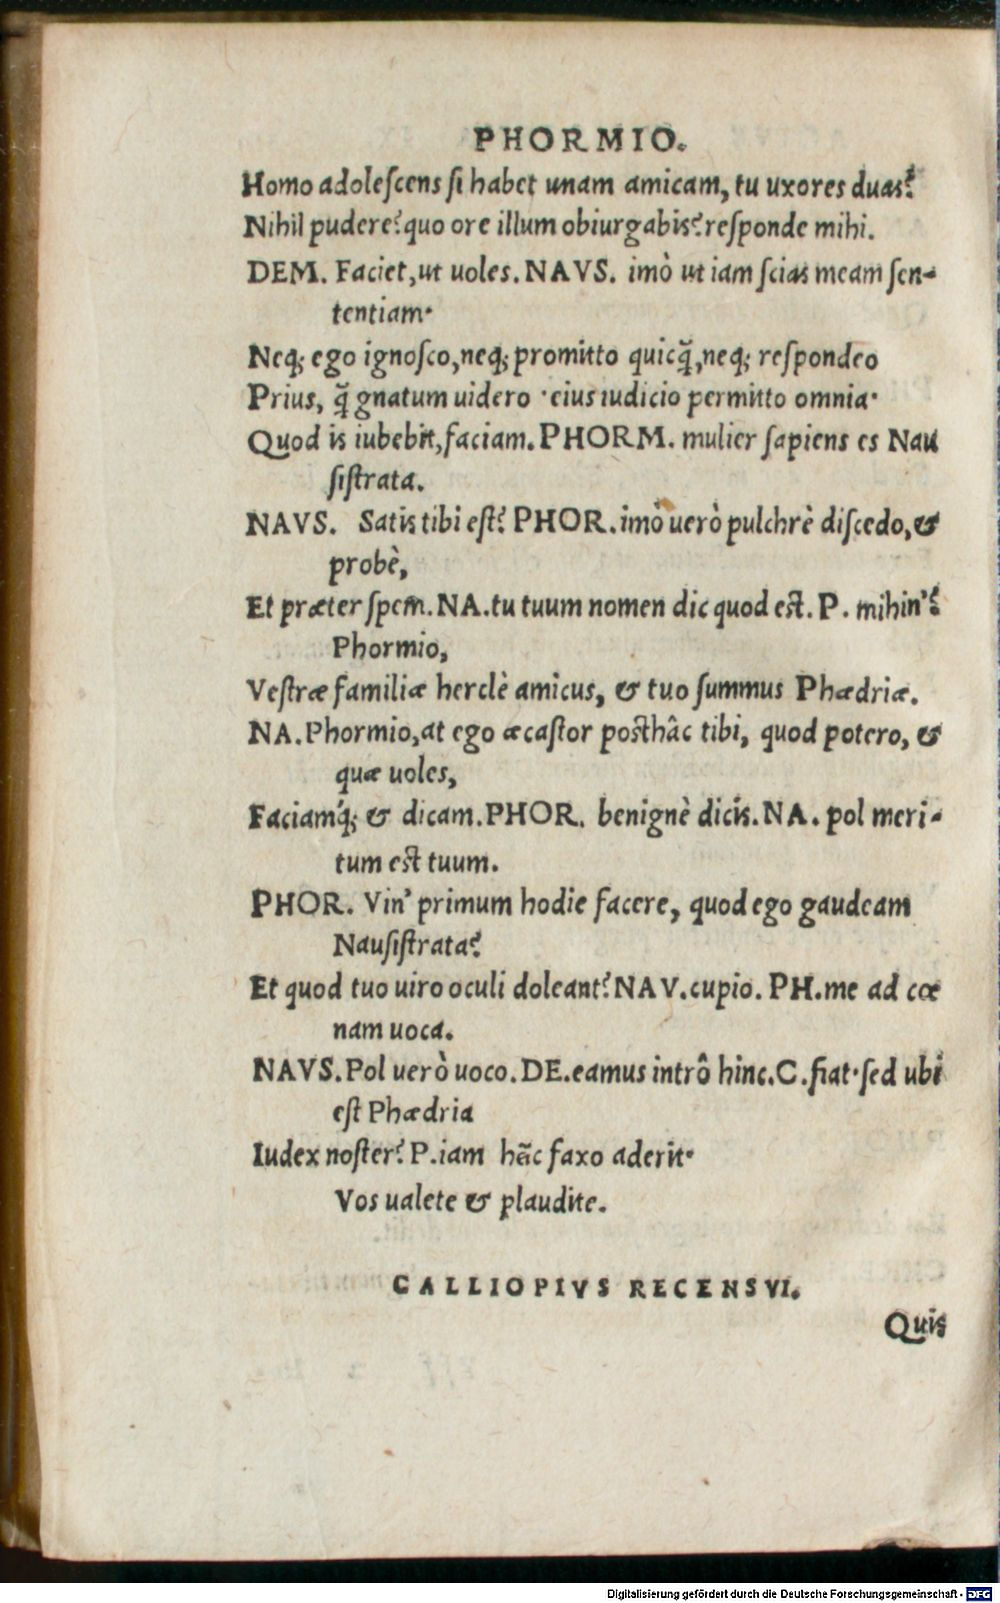 PHORMIO.
Homo adoleſcens ſi habet unam amicam, tu uxores duas?
Nihil pudere? quo ore illum obiurgabis? reſponde mihi.
DEM. Faciet, ut uoles. NAVS. imò ut iam ſcias meam ſen-
tentiam·
Neq; ego ignoſco, neq; promitto quicq̃, neq; reſpondeo
Prius, q̃ gnatum uidero · eius iudicio permitto omnia·
Quod is iubebit, faciam. PHORM. mulier ſapiens es Nau
ſiſtrata.
NAVS. Satis tibi eſt? PHOR. imò uerò pulchrè diſcedo, &
probè,
Et præter ſpem. NA. tu tuum nomen dic quod eſt. P. mihin'?
Phormio,
Veſtræ familiæ herclè amicus, & tuo ſummus Phædriæ.
NA. Phormio, at ego æcaſtor poſthâc tibi, quod potero, &
quæ uoles,
Faciamq́; & dicam. PHOR. benignè dicis. NA. pol meri-
tum eſt tuum.
PHOR. Vin' primum hodie facere, quod ego gaudeam
Nauſiſtrata?
Et quod tuo uiro oculi doleant? NAV. cupio. PH. me ad cœ
nam uoca.
NAVS. Pol uerò uoco. DE. eamus intrô hinc. C. fiat· ſed ubi
eſt Phædria
Iudex noſter? P. iam hãc faxo aderit·
Vos ualete & plaudite.
CALLIOPIVS RECENSVI.
Quis
Digitalisierung gefördert durch die Deutsche Forschungsgemeinschaft - DFG